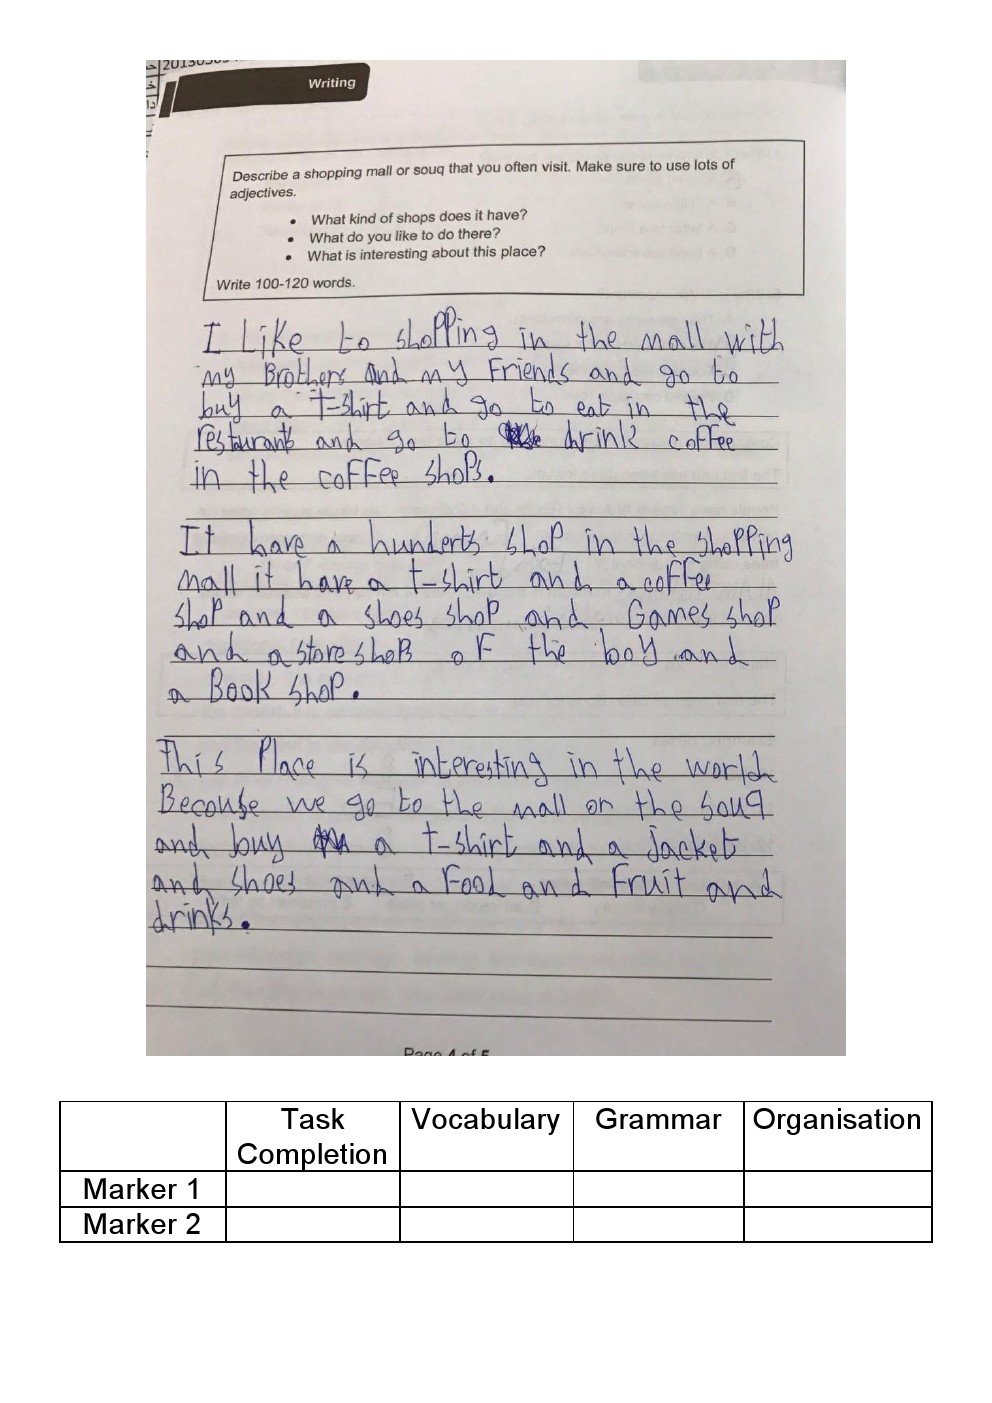 Writing
Describe a shopping mall or souq that you often visit. Make sure to use lots of
adjectives.
• What kind of shops does it have?
• What do you like to do there?
• What is interesting about this place?
Write 100-120 words.
I Like to shopping in the mall with
my Brothers and my Friends and go to
buy a T-shirt and go to eat in the
restaurants and go to drink coffee
in the coffee shops.
It have a hunderts shop in the shopping
mall it have a t-shirt and a coffee
shop and a shoes shop and Games shop
and a store shop of the boy and
a Book shop.
This Place is interesting in the world
Becouse we go to the mall or the souq
and buy a t-shirt and a jacket
and shoes and a Food and Fruit and
drinks.
Page 4 of 5
Task Completion Vocabulary Grammar Organisation
Marker 1
Marker 2